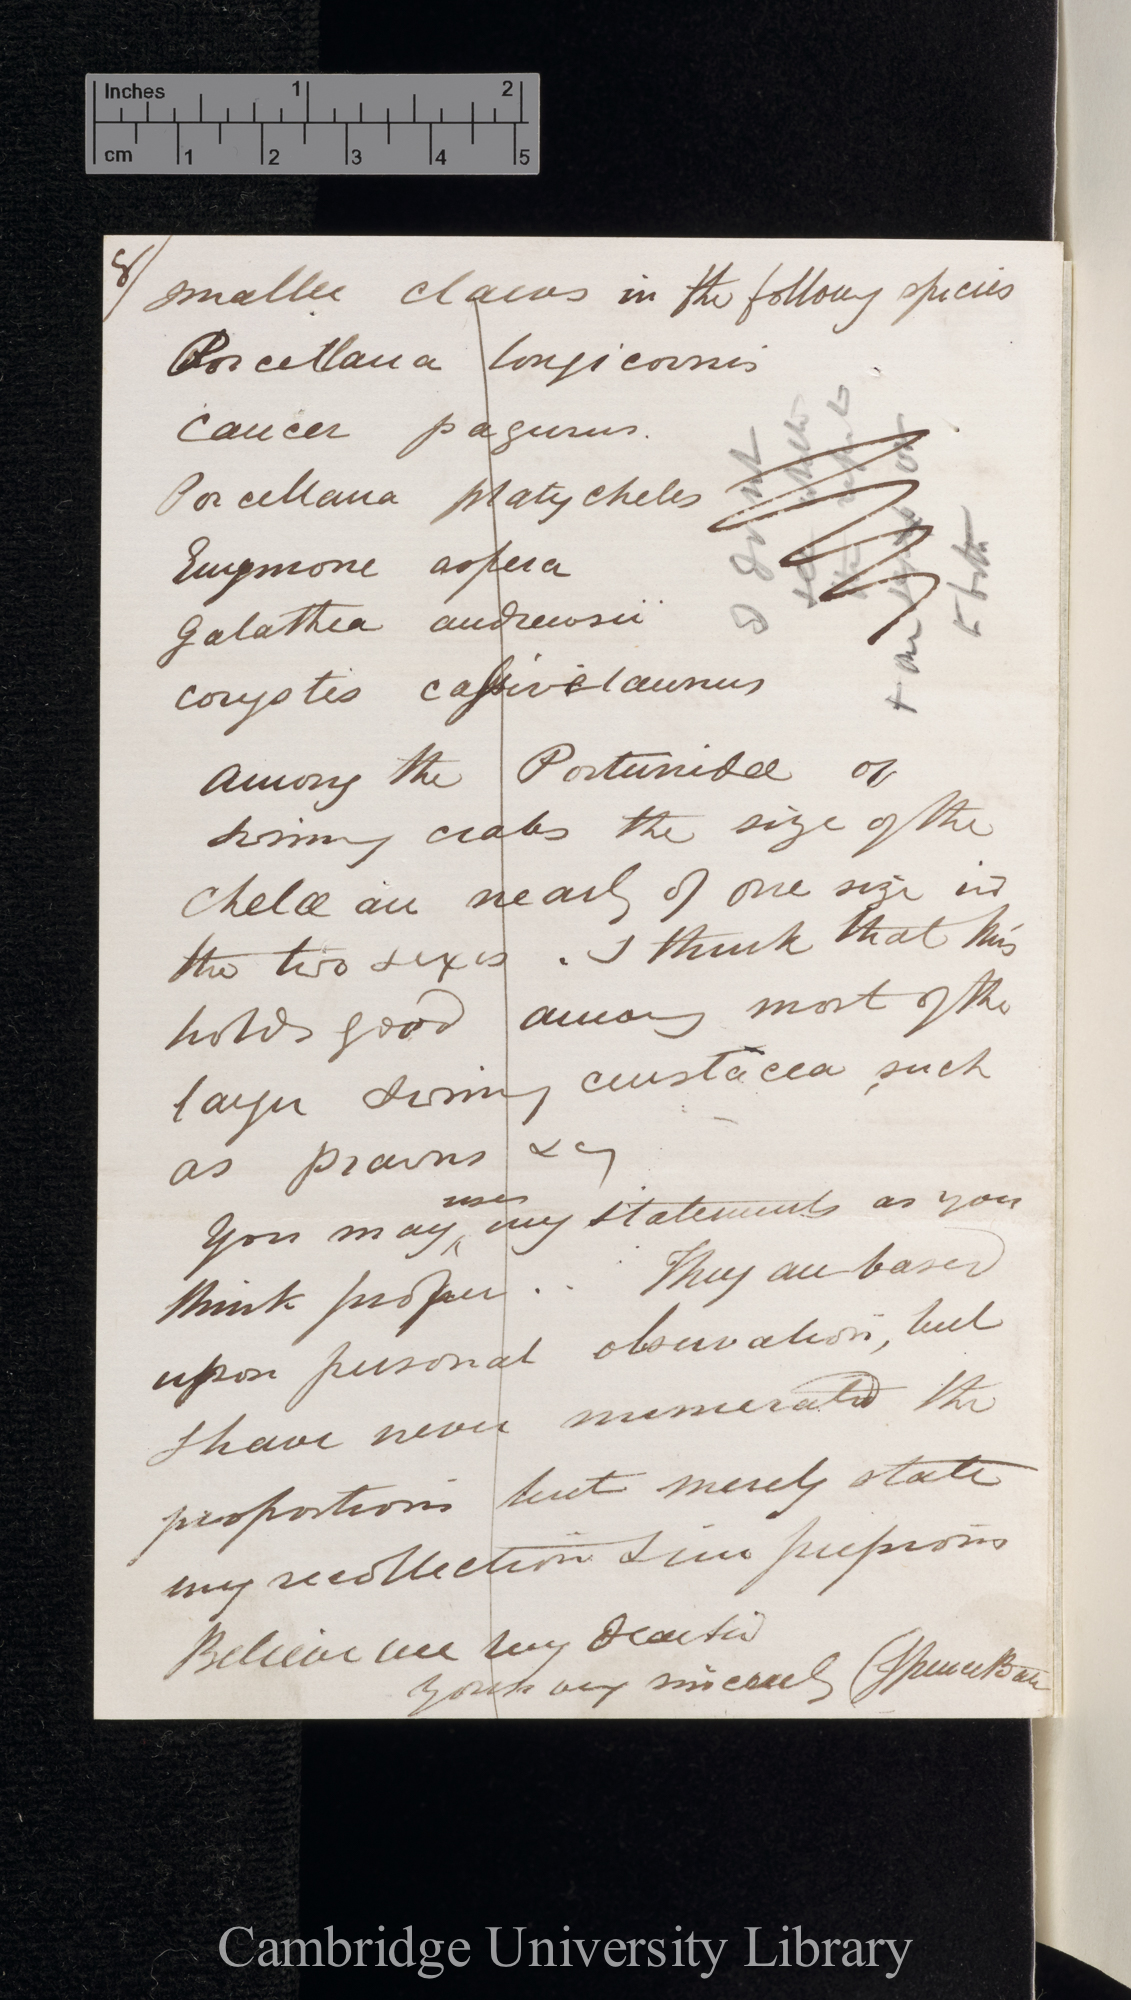 Inches 1 2
cm 1 2 3 4 5
8/
smaller claws in the followg species
Porcellana longicornis
Cancer pagurus.
Porcellana platycheles
Eurymone aspera
Galathea andrewsii
corystes cassivelaunus
among the Portunidæ or
swimg crabs the size of the
chelæ are nearly of one size in
the two sexes. I think that this
holds good among most of the
larger swimg crustacea, such
as prawns &c
uses
You may ^ my statements as you
think proper. They are based
upon personal observation, but
I have never numerated the
proportions but merely state
my recollection & impressions
Believe me my dear Sir
Yours very sincerely C Spence Bate
I do not
both
Cambridge University Library